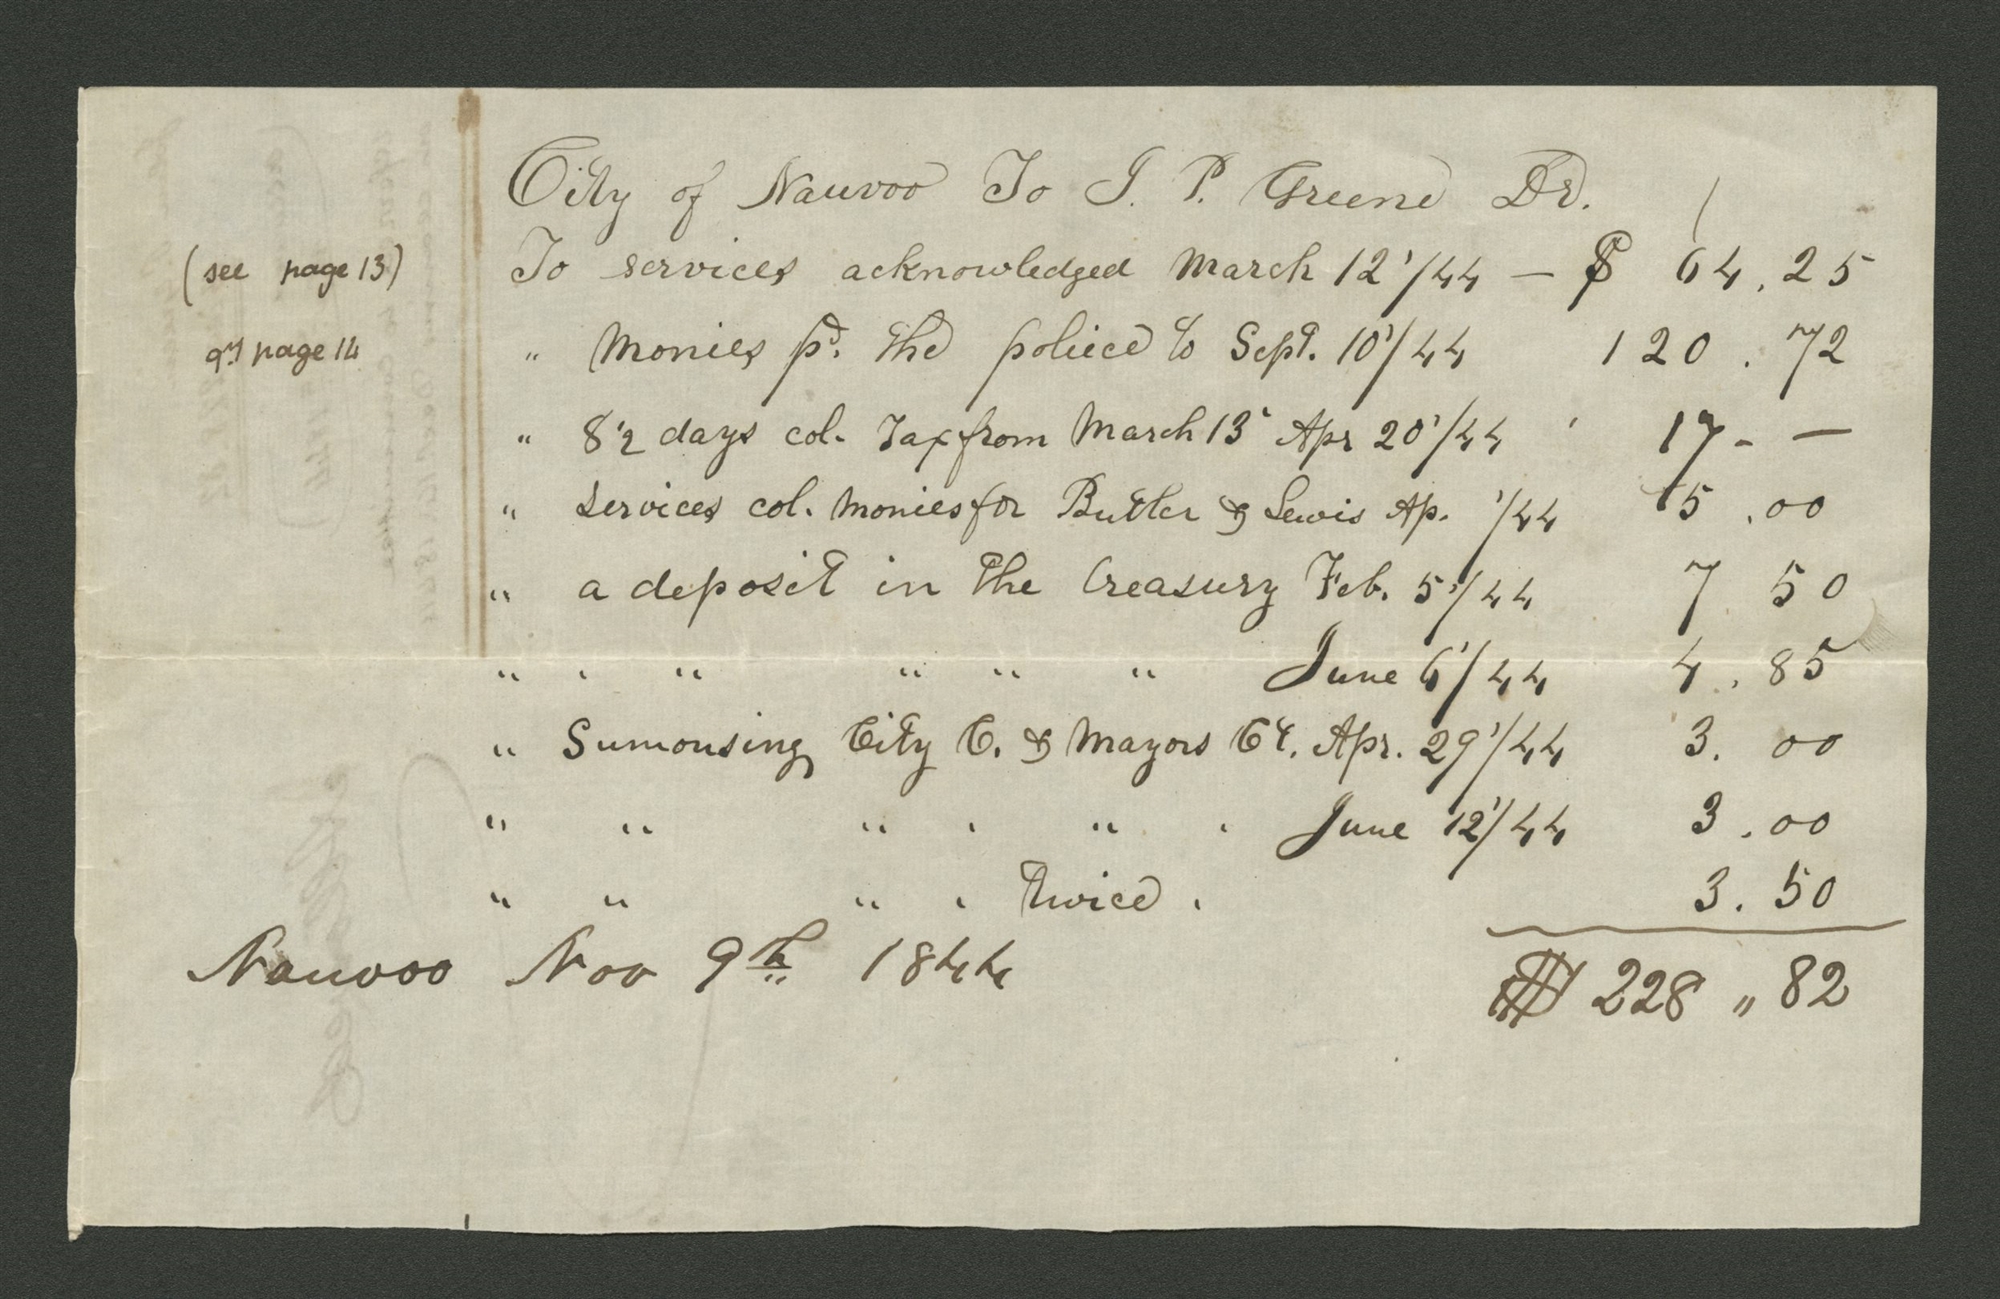 City of Nauvoo To J. P. Greene Dr.
(see page 13) To services acknowledged March 12'/44 — $ 64.25
page 14 " Monies pd. the police to Sept. 10'/44 120.72
" 8 1/2 days col. Tax from March 13 Apr 20'/44 17 - —
" Services col. Monies for Butler & Lewis Ap. '/44 5.00
" a deposit in the treasury Feb. 5'/44 7 50
" " " " " " June 6'/44 4.85
" Sumonsing City C. & Mayors Ct. Apr. 29'/44 3.00
" " " " " " June 12'/44 3.00
" " " " twice. 3.50
Nauvoo Nov 9th 1844 $ 228 " 82